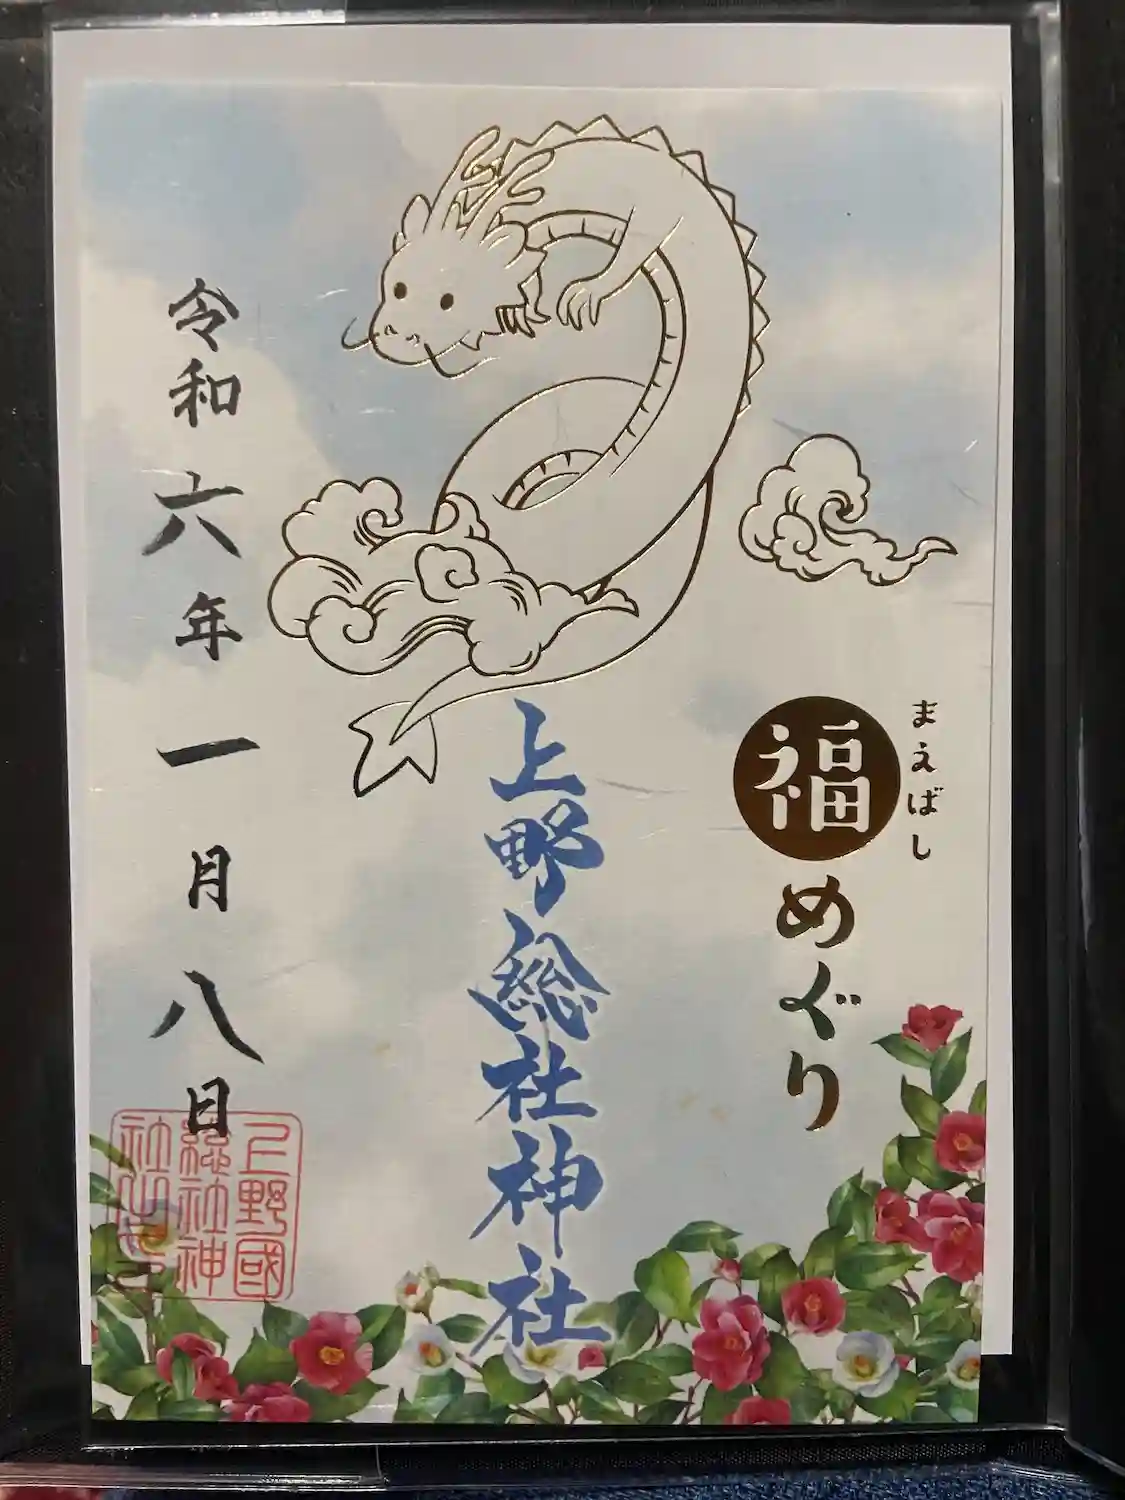 まえばし
福めぐり
上野総社神社
令和六年一月八日
上野國
総社神
社之印